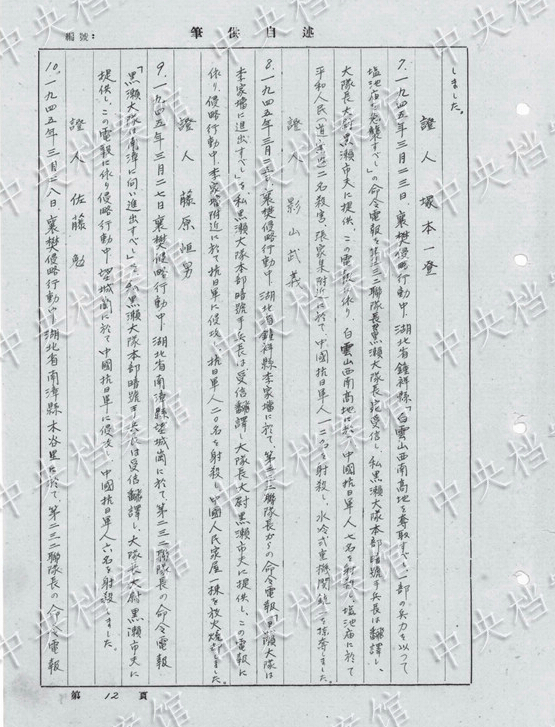 筆供自述
編號：
しました。
證人 塚本一登
7. 一九四五年三月二三日、襄樊侵略行動中、湖北省鍾祥縣「白雲山西南高地を奪取すべし、一部の兵力を以って
塩池庙を襲すべし」の命令電報を第二三二聯隊長黒瀬大隊長宛受信し、私黒瀬大隊本部暗號手兵長は翻譯し、
大隊長大尉黒瀬市夫に提供、この電報に依り、白雲山西南高地に於て、中國抗日軍人七名を射殺し、塩池庙に於て
平和人民二名殺害、張家集附近に於て、中國抗日軍人一二名を射殺し、水冷式重機関銃を掠奪しました。
證人 影山武義
8. 一九四五年三月二 日、襄樊侵略行動中、湖北省鍾祥縣李家壋に於て、第二三二聯隊長からの命令電報「黒瀬大隊は
李家壋に進出すべし」を、私黒瀬大隊本部暗號手兵長は受信翻譯し大隊長大尉黒瀬市夫に提供し、この電報に
依り侵略行動中、李家壋附近に於て抗日軍に侵攻し、抗日軍人二〇名を射殺し、中國人民家屋一棟を放火焼却しました。
證人 藤原恒男
9. 一九四五年三月二七日、襄樊侵略行動中、湖北省南漳縣望城崗に於て、第二三二聯隊長の命令電報
「黒瀬大隊は南漳に向い進出すべし」を、私黒瀬大隊本部暗號手兵長は受信翻譯し、大隊長大尉黒瀬市夫に
提供し、この電報に依り侵略行動中、望城崗に於て中國抗日軍に侵攻し、中國抗日軍人六名を射殺しました。
證人 佐藤勉
10. 一九四五年三月二八日、襄樊侵略行動中、湖北省南漳縣木谷里に於て、第二三二聯隊長の命令電報
第 12 頁
中央档案馆